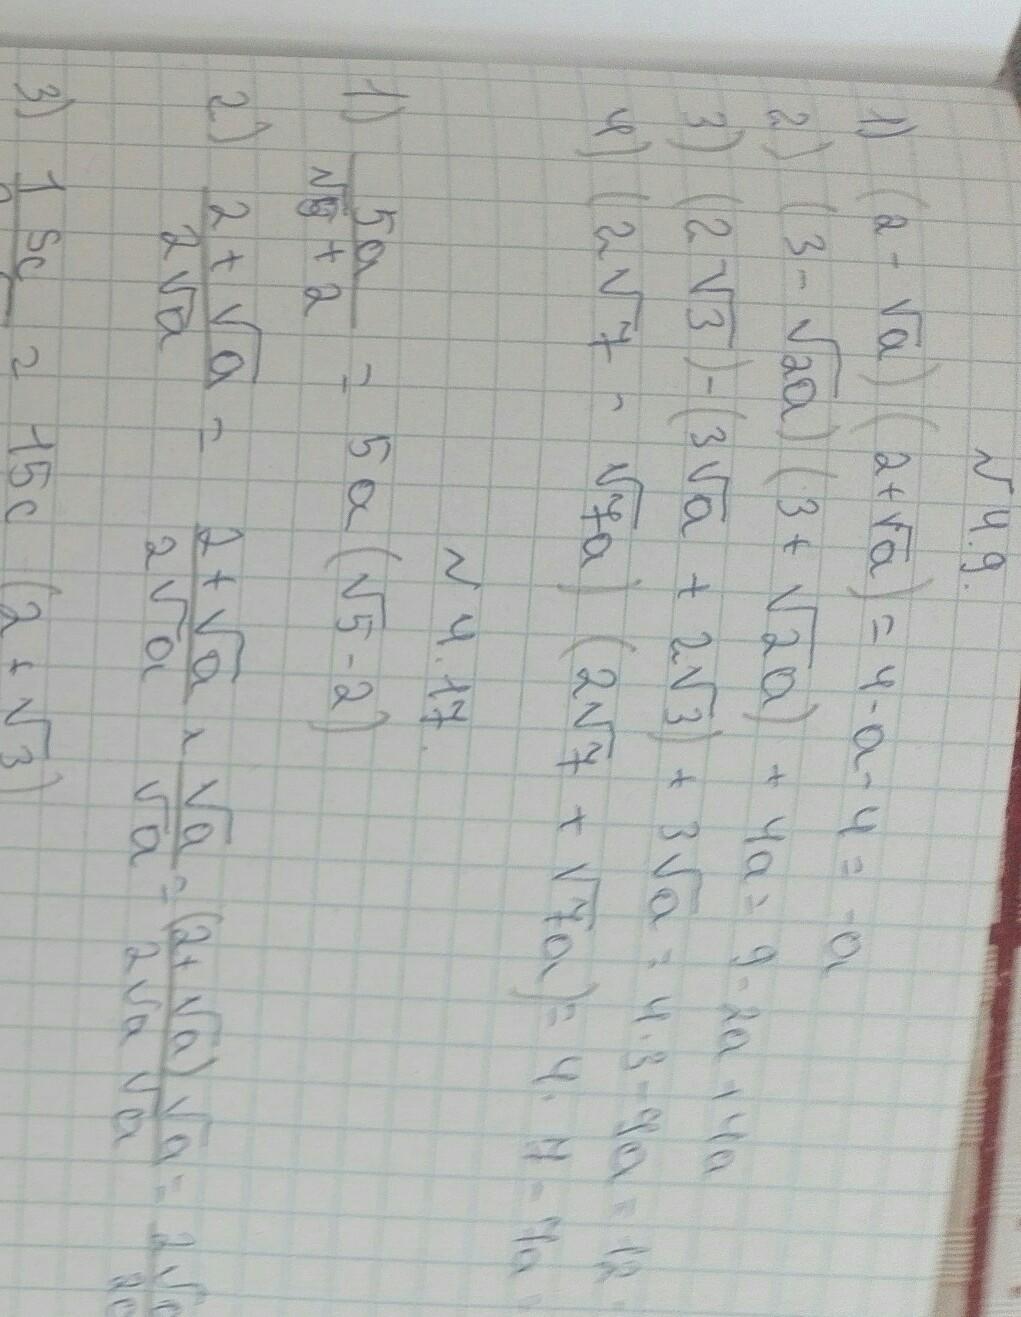 № 4.9.
1) (2 - √a) (2 + √a) = 4 - a - 4 = -a
2) (3 - √2a) (3 + √2a) + 4a = 9 - 2a + 4a
3) (2√3) - (3√a + 2√3) + 3√a = 4·3 - 9a = 12 -
4) (2√7 - √7a) (2√7 + √7a) = 4·7 - 7a =
№ 4.17.
1) 5a / √5 + 2 = 5a (√5 - 2)
2) 2 + √a / 2√a = 2 + √a / 2√a × √a / √a = (2 + √a) √a / 2√a √a =
3) 15c = 15c (2 + √3)